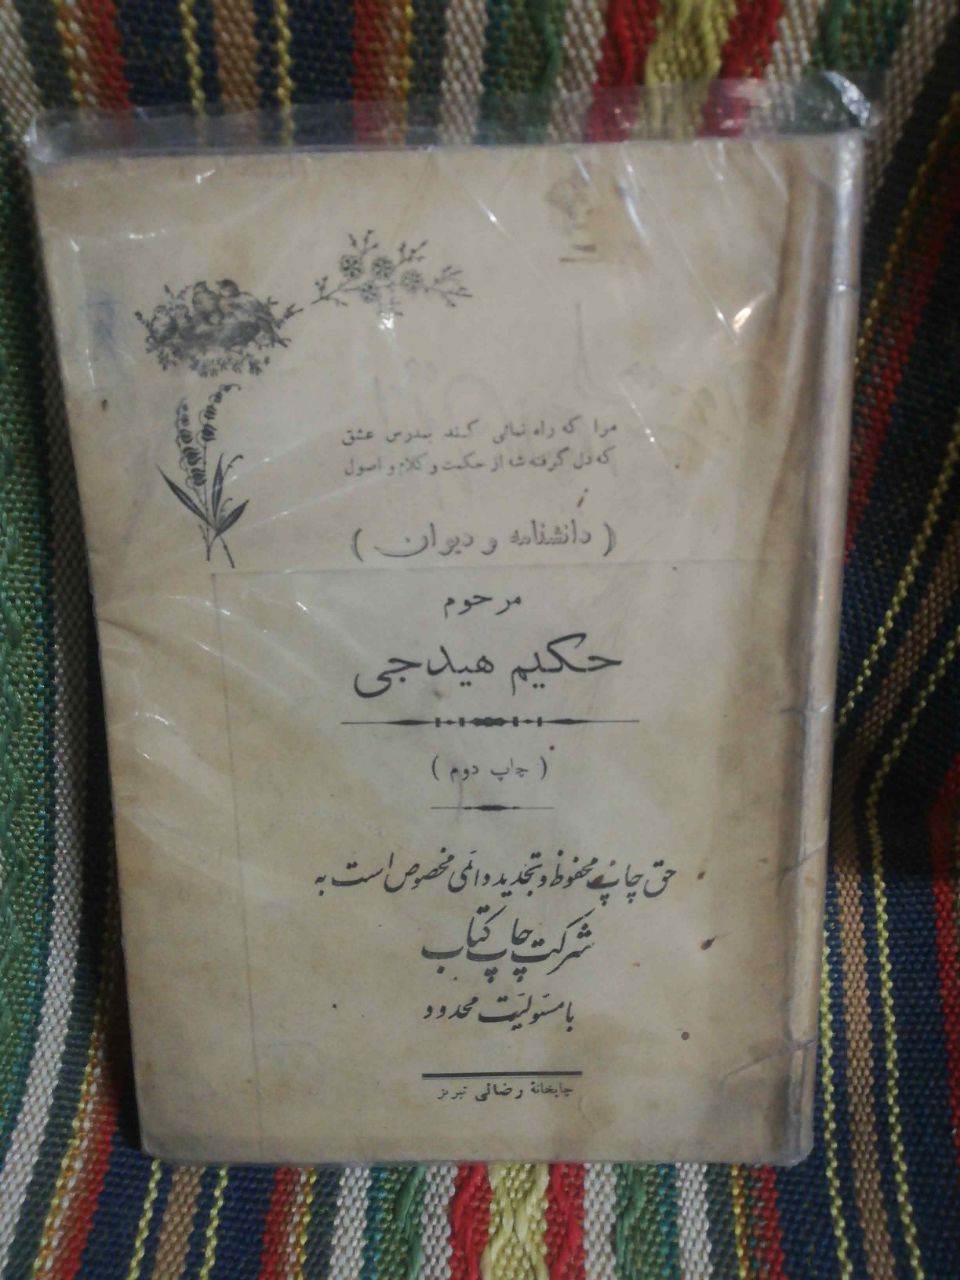 مرا که راه نمائی کند بمدرس عشق
که دل گرفته شد از حکمت و کلام و اصول
( دانشنامه و دیوان )
مرحوم
حکیم هیدجی
( چاپ دوم )
حق چاپ محفوظ و تجدید دائمی مخصوص است به
شرکت چاپ کتاب
با مسئولیت محدود
چاپخانهٔ رضائی تبریز